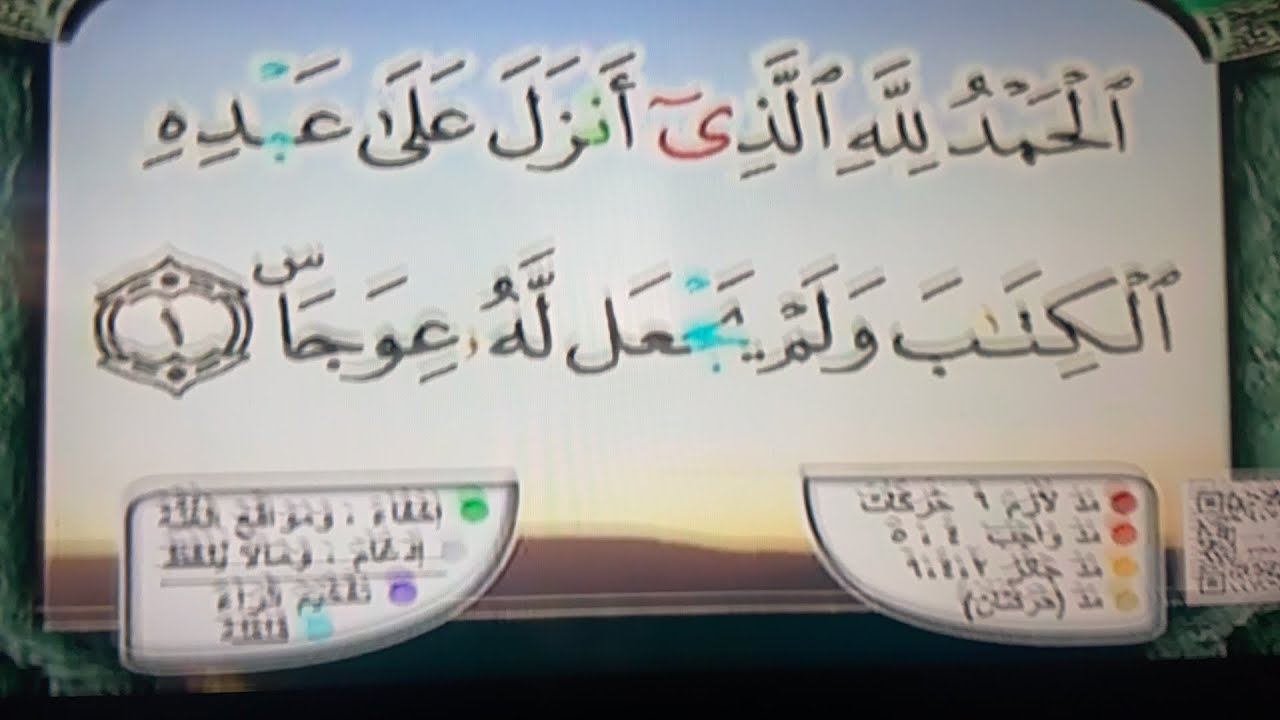 ٱلْحَمْدُ لِلَّهِ ٱلَّذِىٓ أَنزَلَ عَلَىٰ عَبْدِهِ
ٱلْكِتَـٰبَ وَلَمْ يَجْعَل لَّهُۥ عِوَجَاۜ ١
مدّ لازم ٦ حركات
مدّ واجب ٤ ، ٥
مدّ جائز ٢،٤،٦
مدّ (حركتان)
إخفاء ، ومواقع الغُنّة
إدغام ، وما لا يُلفظ
تفخيم الراء
قلقلة